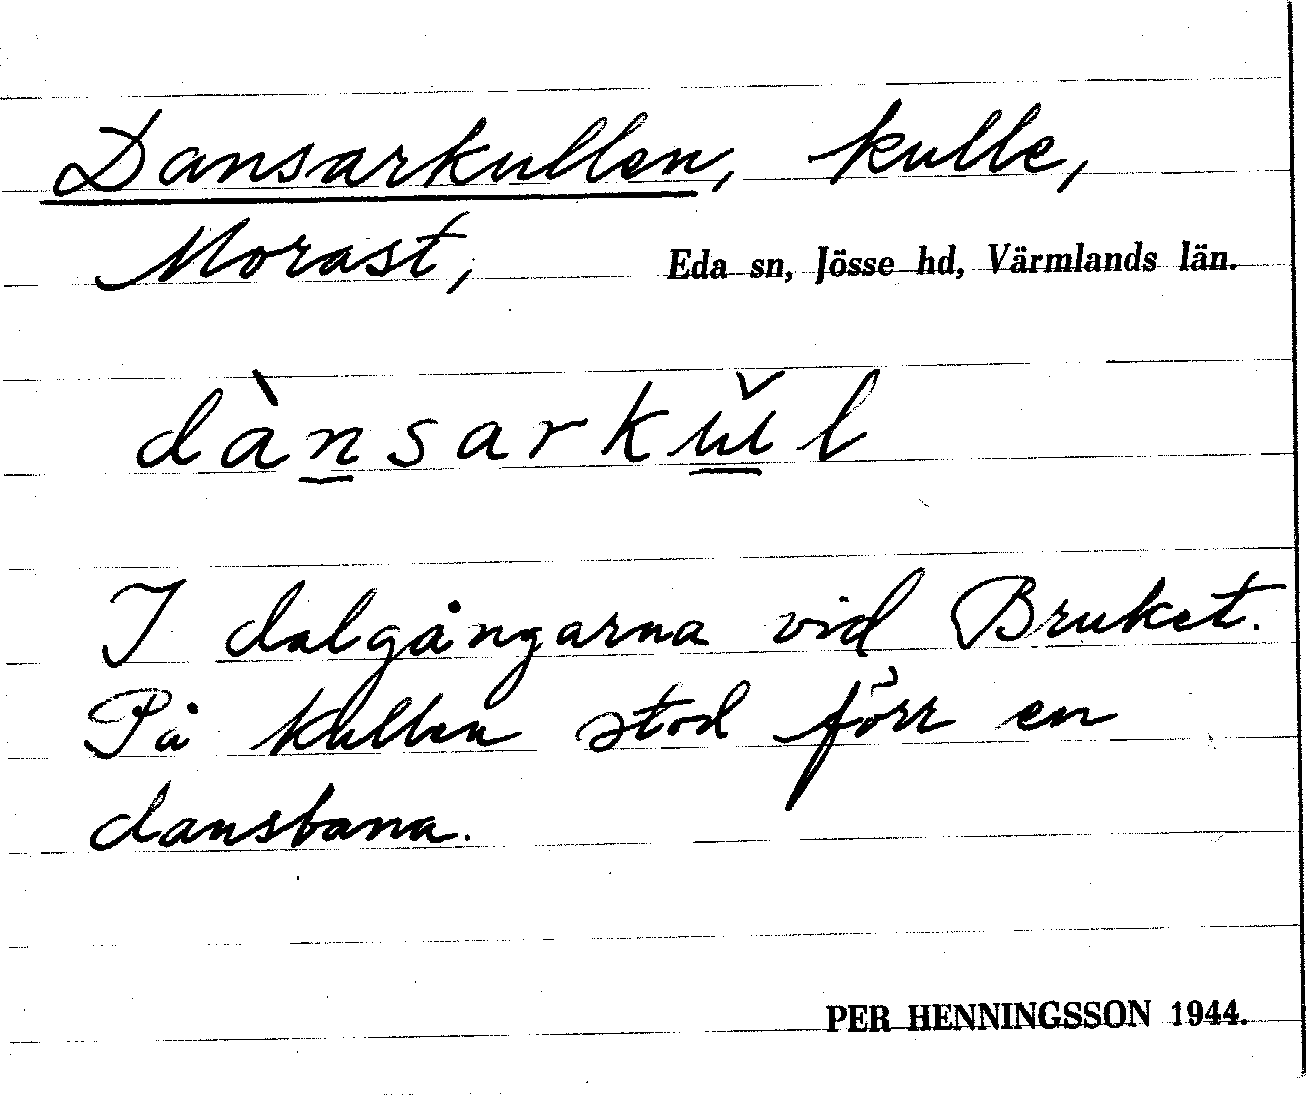 Dansarkullen, kulle,
Morast, Eda sn, Jösse hd, Värmlands län.
dànsarkŭl
I dalgångarna vid Bruket.
På kullen stod förr en
dansbana.
PER HENNINGSSON 1944.